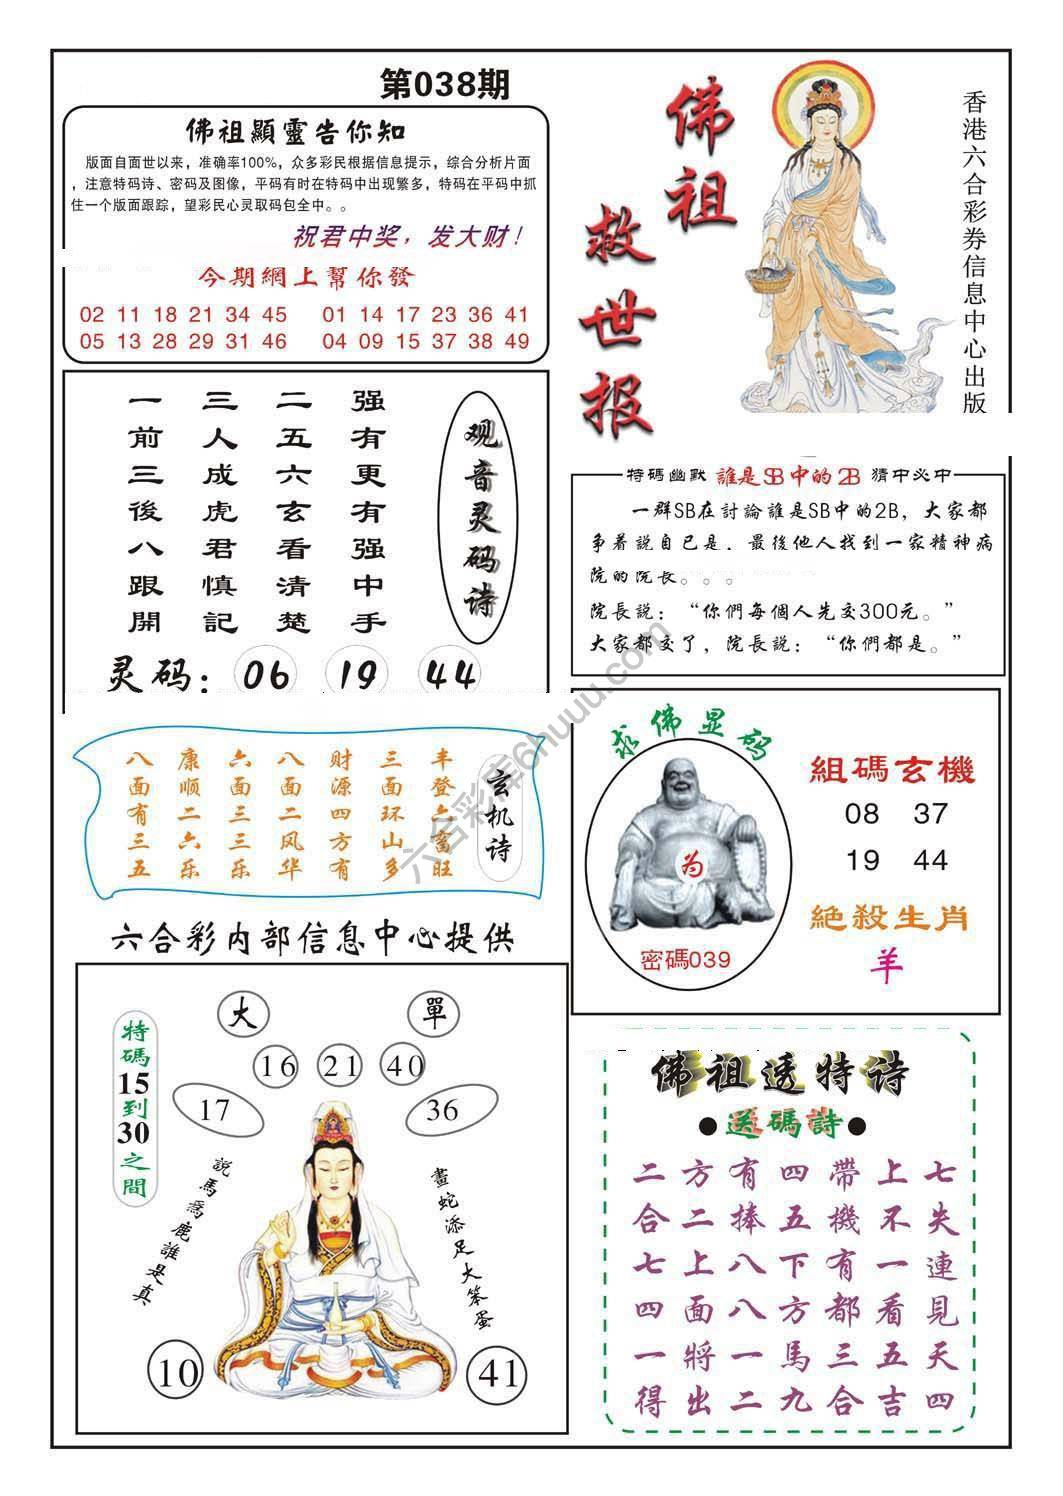 第038期
佛祖顯靈告你知
版面自面世以来，准确率100%，众多彩民根据信息提示，综合分析片面
，注意特码诗、密码及图像，平码有时在特码中出现繁多，特码在平码中抓
住一个版面跟踪，望彩民心灵取码包全中。。
祝君中奖，发大财！
今期網上幫你發
02 11 18 21 34 45 01 14 17 23 36 41
05 13 28 29 31 46 04 09 15 37 38 49
佛祖
救世报
香港六合彩券信息中心出版
观音灵码诗
强有更有强中手
二五六玄看清楚
三人成虎君慎記
一前三後八跟開
灵码：06 19 44
特碼幽默 誰是SB中的2B 猜中必中
一群SB在討論誰是SB中的2B，大家都
争着説自已是．最後他人找到一家精神病
院的院长。。。
院長説：“你們每個人先交300元。”
大家都交了，院長説：“你們都是。”
玄机诗
丰登六畜旺
三面环山多
财源四方有
八面二风华
六面三三乐
康顺二六乐
八面有三五
求佛显码
为
密碼039
組碼玄機
08 37
19 44
絶殺生肖
羊
六合彩内部信息中心提供
特碼15到30之間
大 單
16 21 40
17 36
説馬為鹿誰是真
畫蛇添足大笨蛋
10 41
佛祖透特诗
●送碼詩●
七失連見天四
上不一看五吉
帶機有都三合
四五下方馬九
有捧八八一二
方二上面將出
二合七四一得
六合彩库6huuu.com